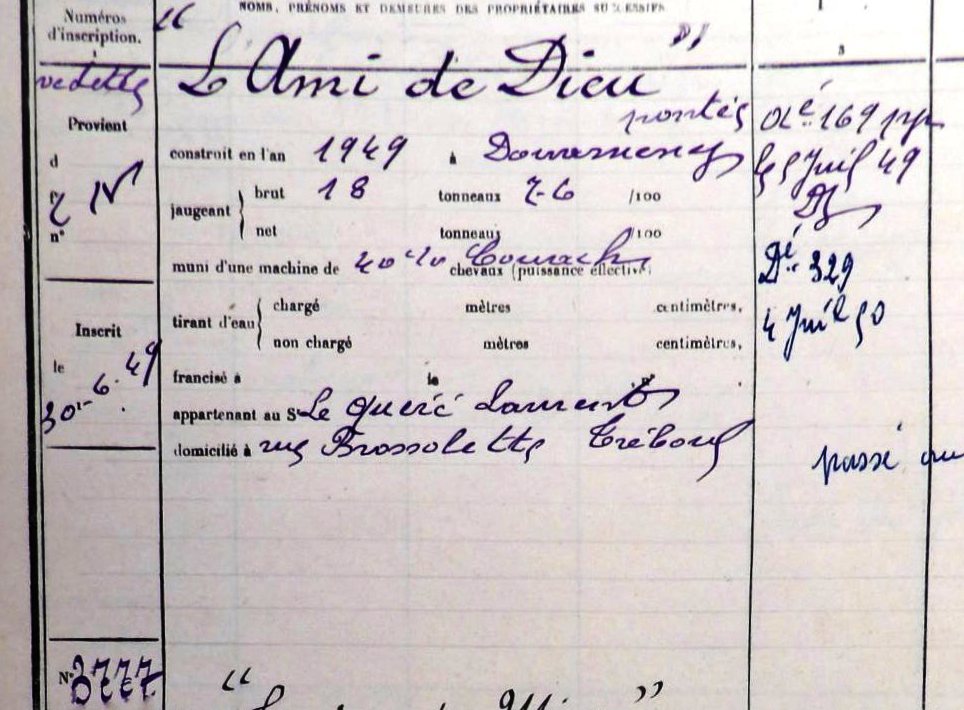 Numéros
d'inscription.
NOMS, PRÉNOMS ET DEMEURES DES PROPRIÉTAIRES SUCCESSIFS
3
vedette
" L'Ami de Dieu "
pontée
Provient
d
N
n°
construit en l'an 1949 à Douarnenez
jaugeant brut 18 tonneaux 76 /100
net tonneaux /100
muni d'une machine de chevaux (puissance effective)
tirant d'eau chargé mètres centimètres,
non chargé mètres centimètres,
Inscrit
le
30-6-49
francisé à le
appartenant au Sr Le Queré Laurent
domicilié à rue Brossolette Tréboul
Dé 169
5 Juil 49
Dz
Dé 329
4 Juil 50
passé au
N° 3777
" "